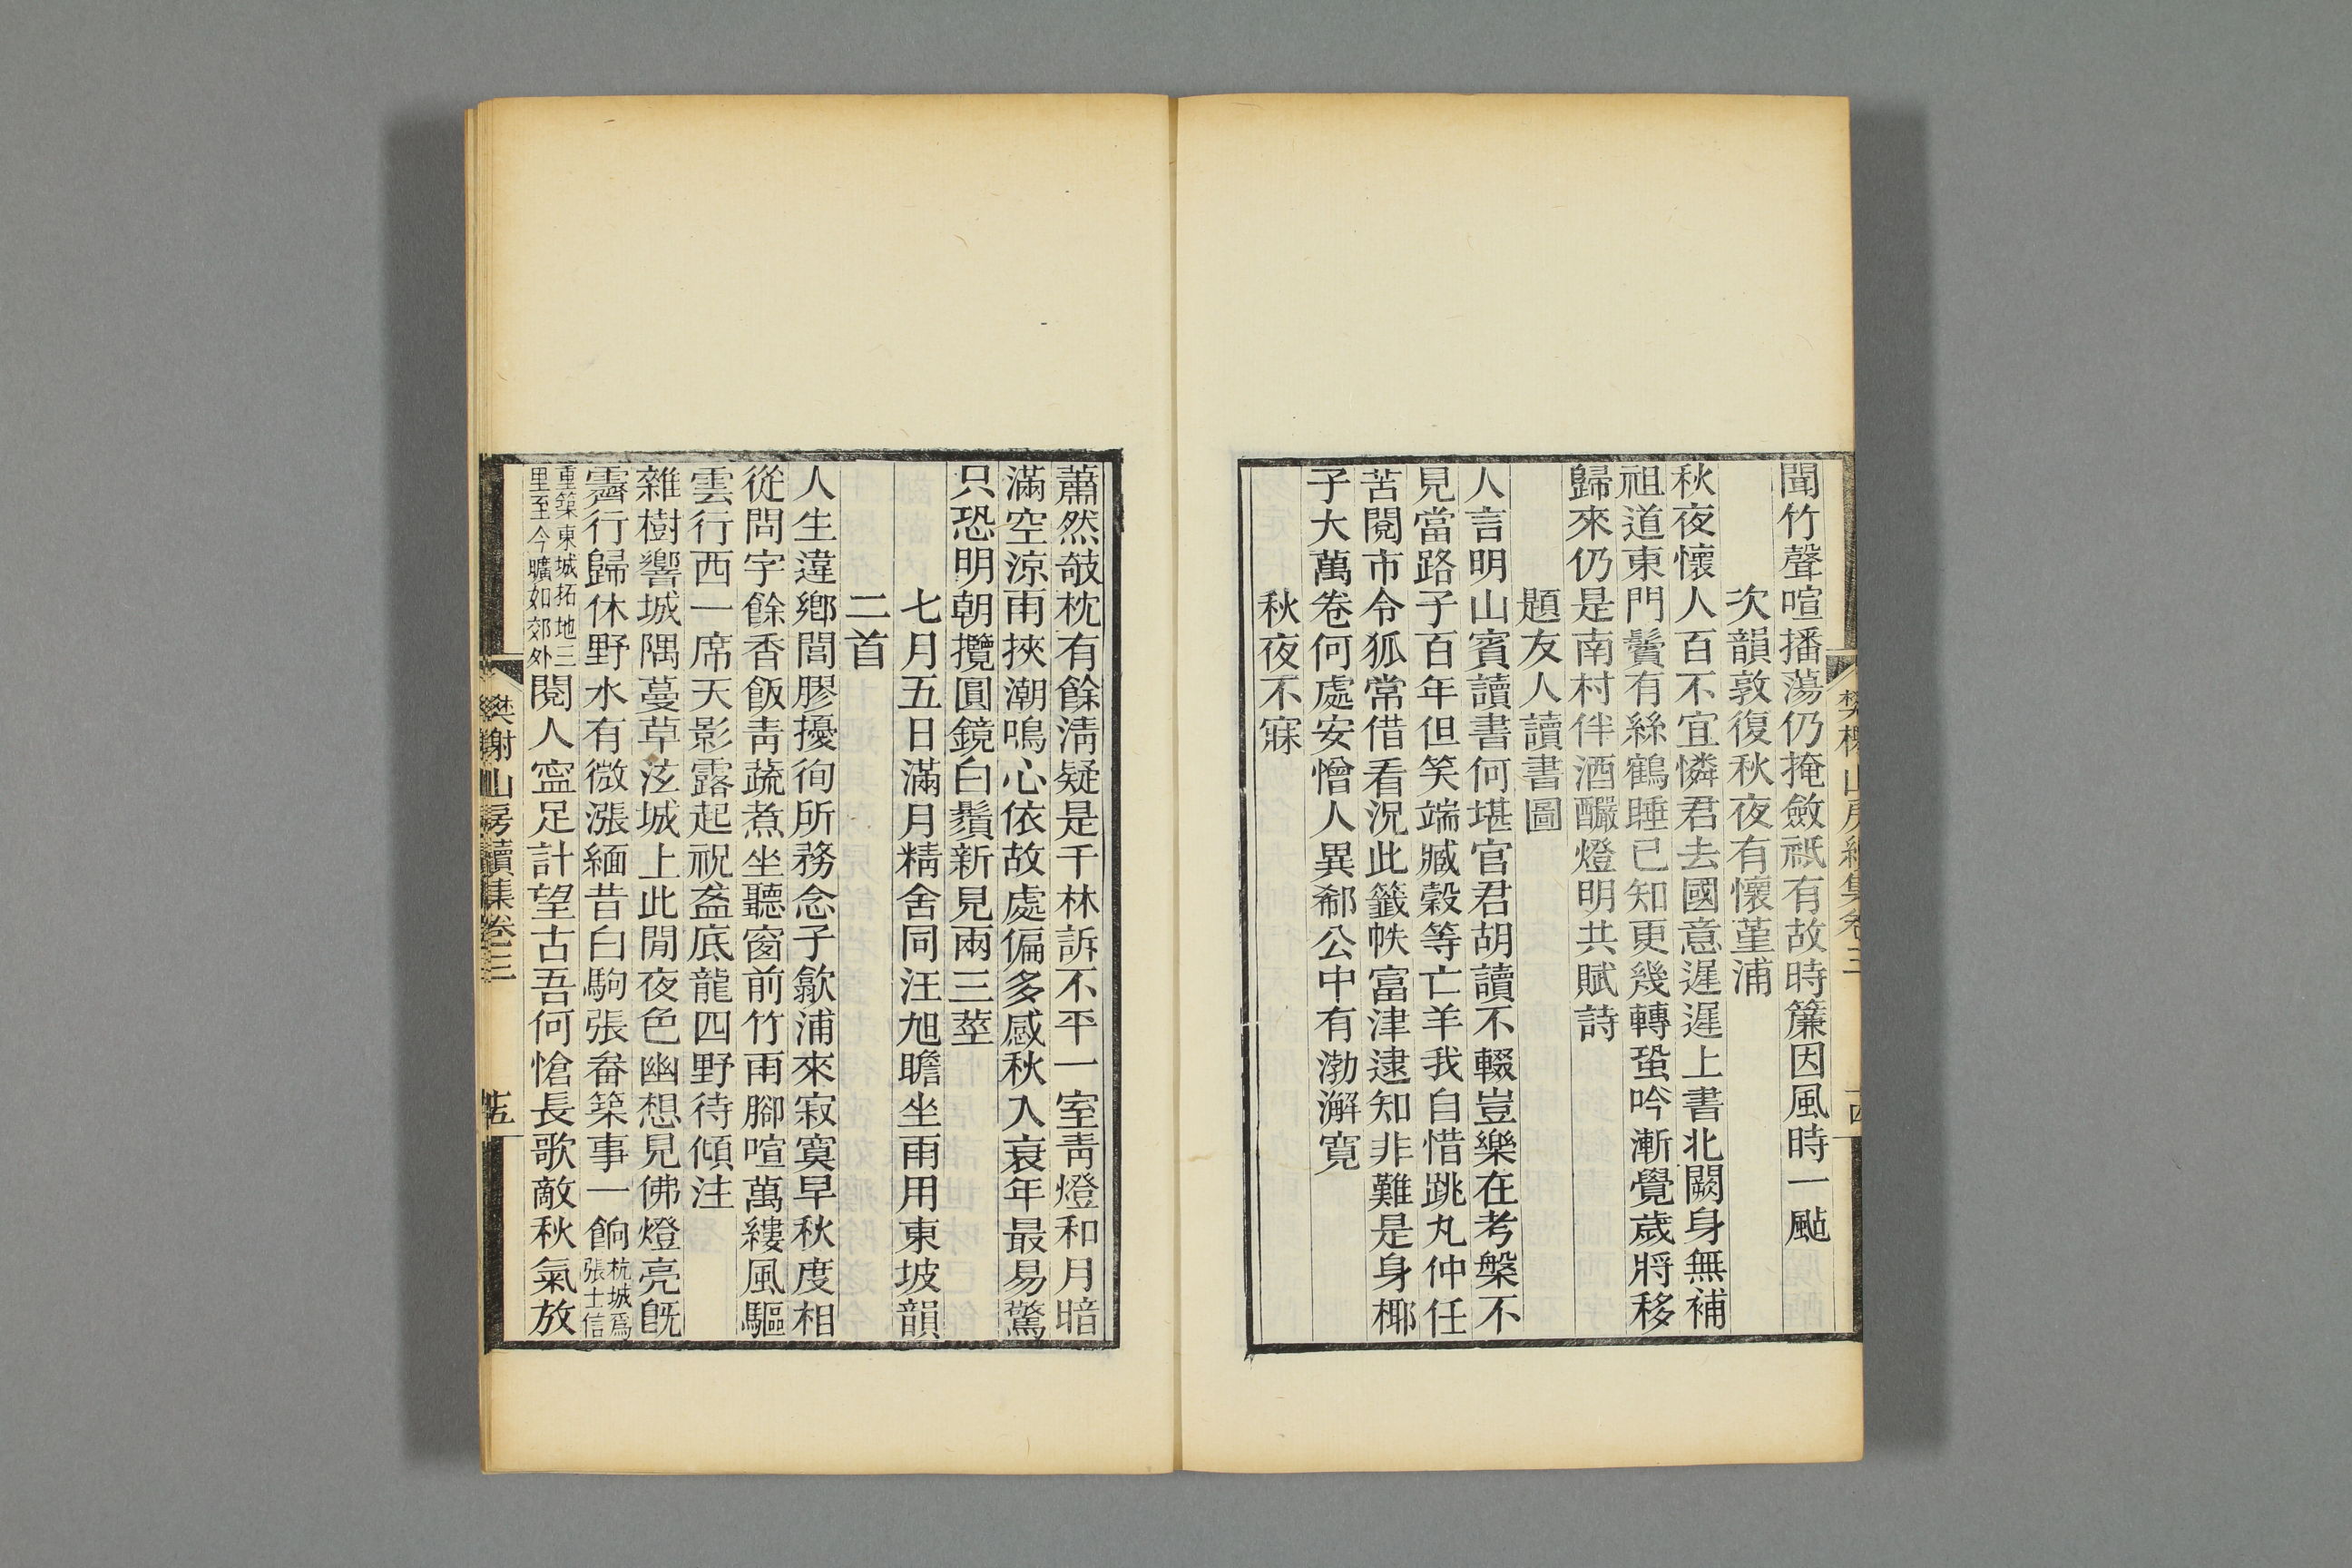 聞竹聲喧播蕩仍掩斂祗有故時簾因風時一颭
次韻敦復秋夜有懷堇浦
秋夜懷人百不宜憐君去國意遲遲上書北闕身無補
祖道東門鬢有絲鶴睡已知更幾轉蛩吟漸覺歲將移
歸來仍是南村伴酒釅燈明共賦詩
題友人讀書圖
人言明山賓讀書何堪官君胡讀不輟豈樂在考槃不
見當路子百年但笑端臧穀等亡羊我自惜跳丸仲任
苦閱市令狐常借看況此籤帙富津逮知非難是身椰
子大萬卷何處安憎人異郗公中有渤澥寬
秋夜不寐
蕭然攲枕有餘淸疑是千林訴不平一室靑燈和月暗
滿空涼雨挾潮鳴心依故處偏多感秋入衰年最易驚
只恐明朝攬圓鏡白鬚新見兩三莖
七月五日滿月精舍同汪旭瞻坐雨用東坡韻
二首
人生違鄉閭膠擾徇所務念子歙浦來寂寞早秋度相
從問字餘香飯靑蔬煮坐聽窗前竹雨腳喧萬縷風驅
雲行西一席天影露起視盆底龍四野待傾注
雜樹響城隅蔓草泫城上此閒夜色幽想見佛燈亮旣
霽行歸休野水有微漲緬昔白駒張畚築事一餉杭城爲張士信
重築東城拓地三里至今曠如郊外閱人寍足計望古吾何愴長歌敵秋氣放
樊榭山房續集卷三
十五